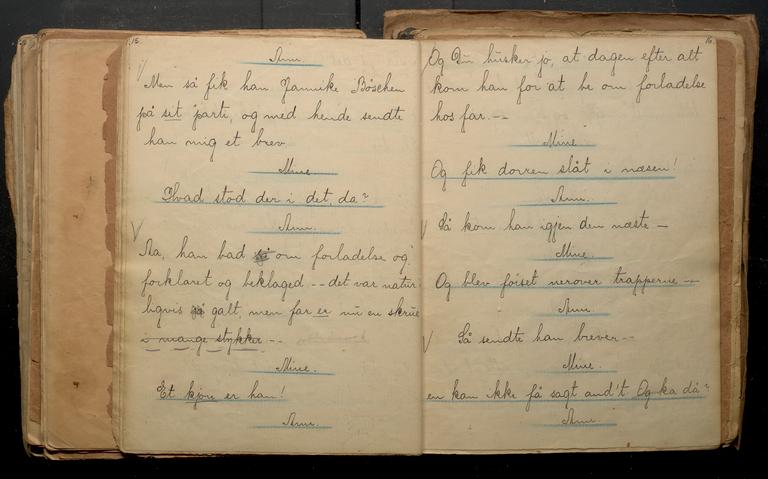 15.
Ann.
Men så fik han Jannike Böschen
på sit parti, og med hende sendte
han mig et brev
Mine.
Hvad stod der i det, da?
Ann.
Aa, han bad så om forladelse og
forklaret og beklaged -- det var natur
ligvis så galt, men far er nu en skrue
i mange stykker --
Mine.
Et kjøre er han!
Ann.
16.
Og Du husker jo, at dagen efter alt
kom han for at be om forladelse
hos far. --
Mine
Og fik dørren slåt i næsen!
Ann.
Så kom han igjen den næste —
Mine.
Og blev föiset nerover trapperne —
Ann.
Så sendte han brever --
Mine.
en kan ikke få sagt and't Og ka då?
Ann.